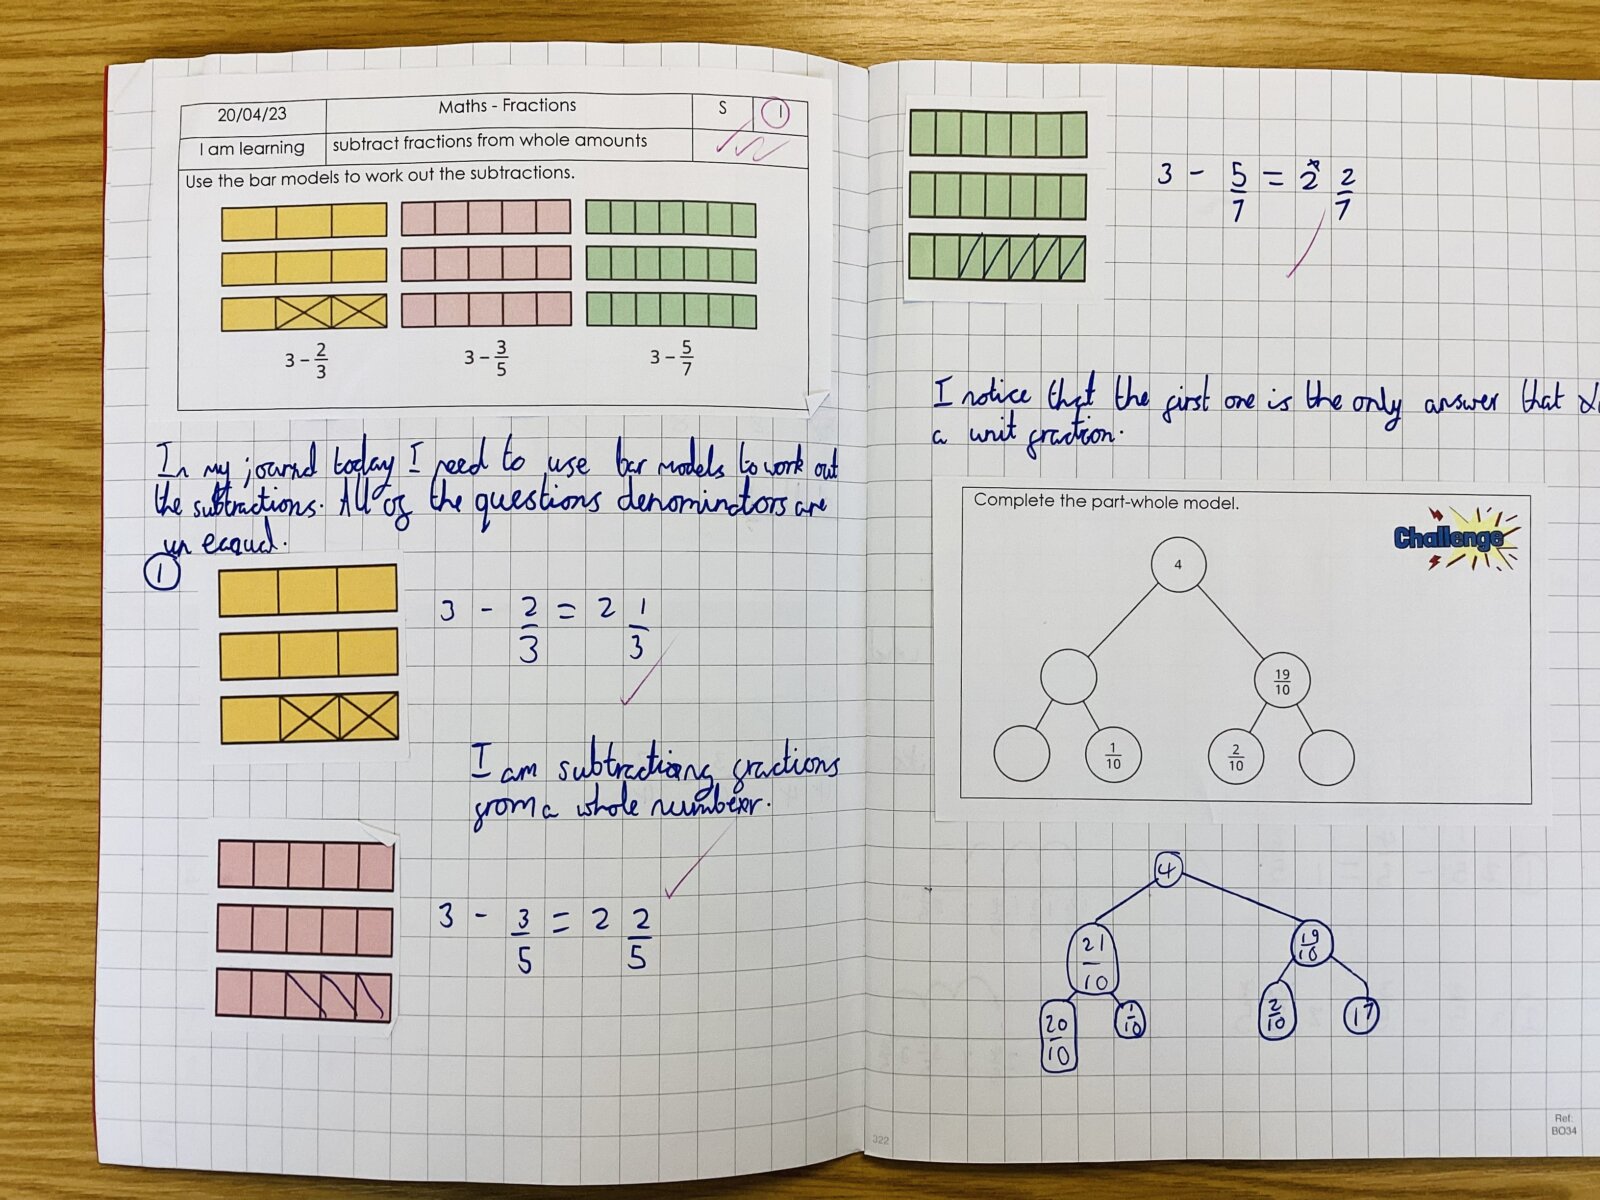 20/04/23 Maths - Fractions S 1
I am learning subtract fractions from whole amounts
Use the bar models to work out the subtractions.
3 - 2/3 3 - 3/5 3 - 5/7
In my journal today I need to use bar models to work out
the subtractions. All of the questions denominators are
un equal.
1
3 - 2/3 = 2 1/3
I am subtractiong fractions
from a whole number.
3 - 3/5 = 2 2/5
322
3 - 5/7 = 2 2/7
I notice that the first one is the only answer that
a unit fraction.
Complete the part-whole model.
Challenge
4
19/10
1/10 2/10
4
21/10 19/10
20/10 1/10 2/10 17
Ref:
BO34